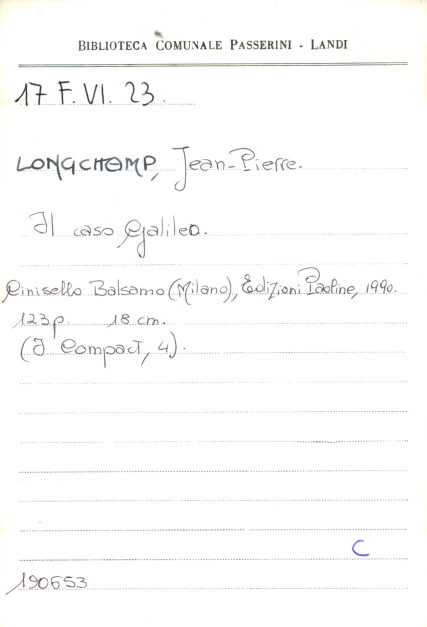 BIBLIOTECA COMUNALE PASSERINI - LANDI
17 F. VI. 23.
LONGCHAMP, Jean-Pierre.
Il caso Galileo.
Cinisello Balsamo (Milano), Edizioni Paoline, 1990.
123p. 18 cm.
(I Compact, 4).
C
190653